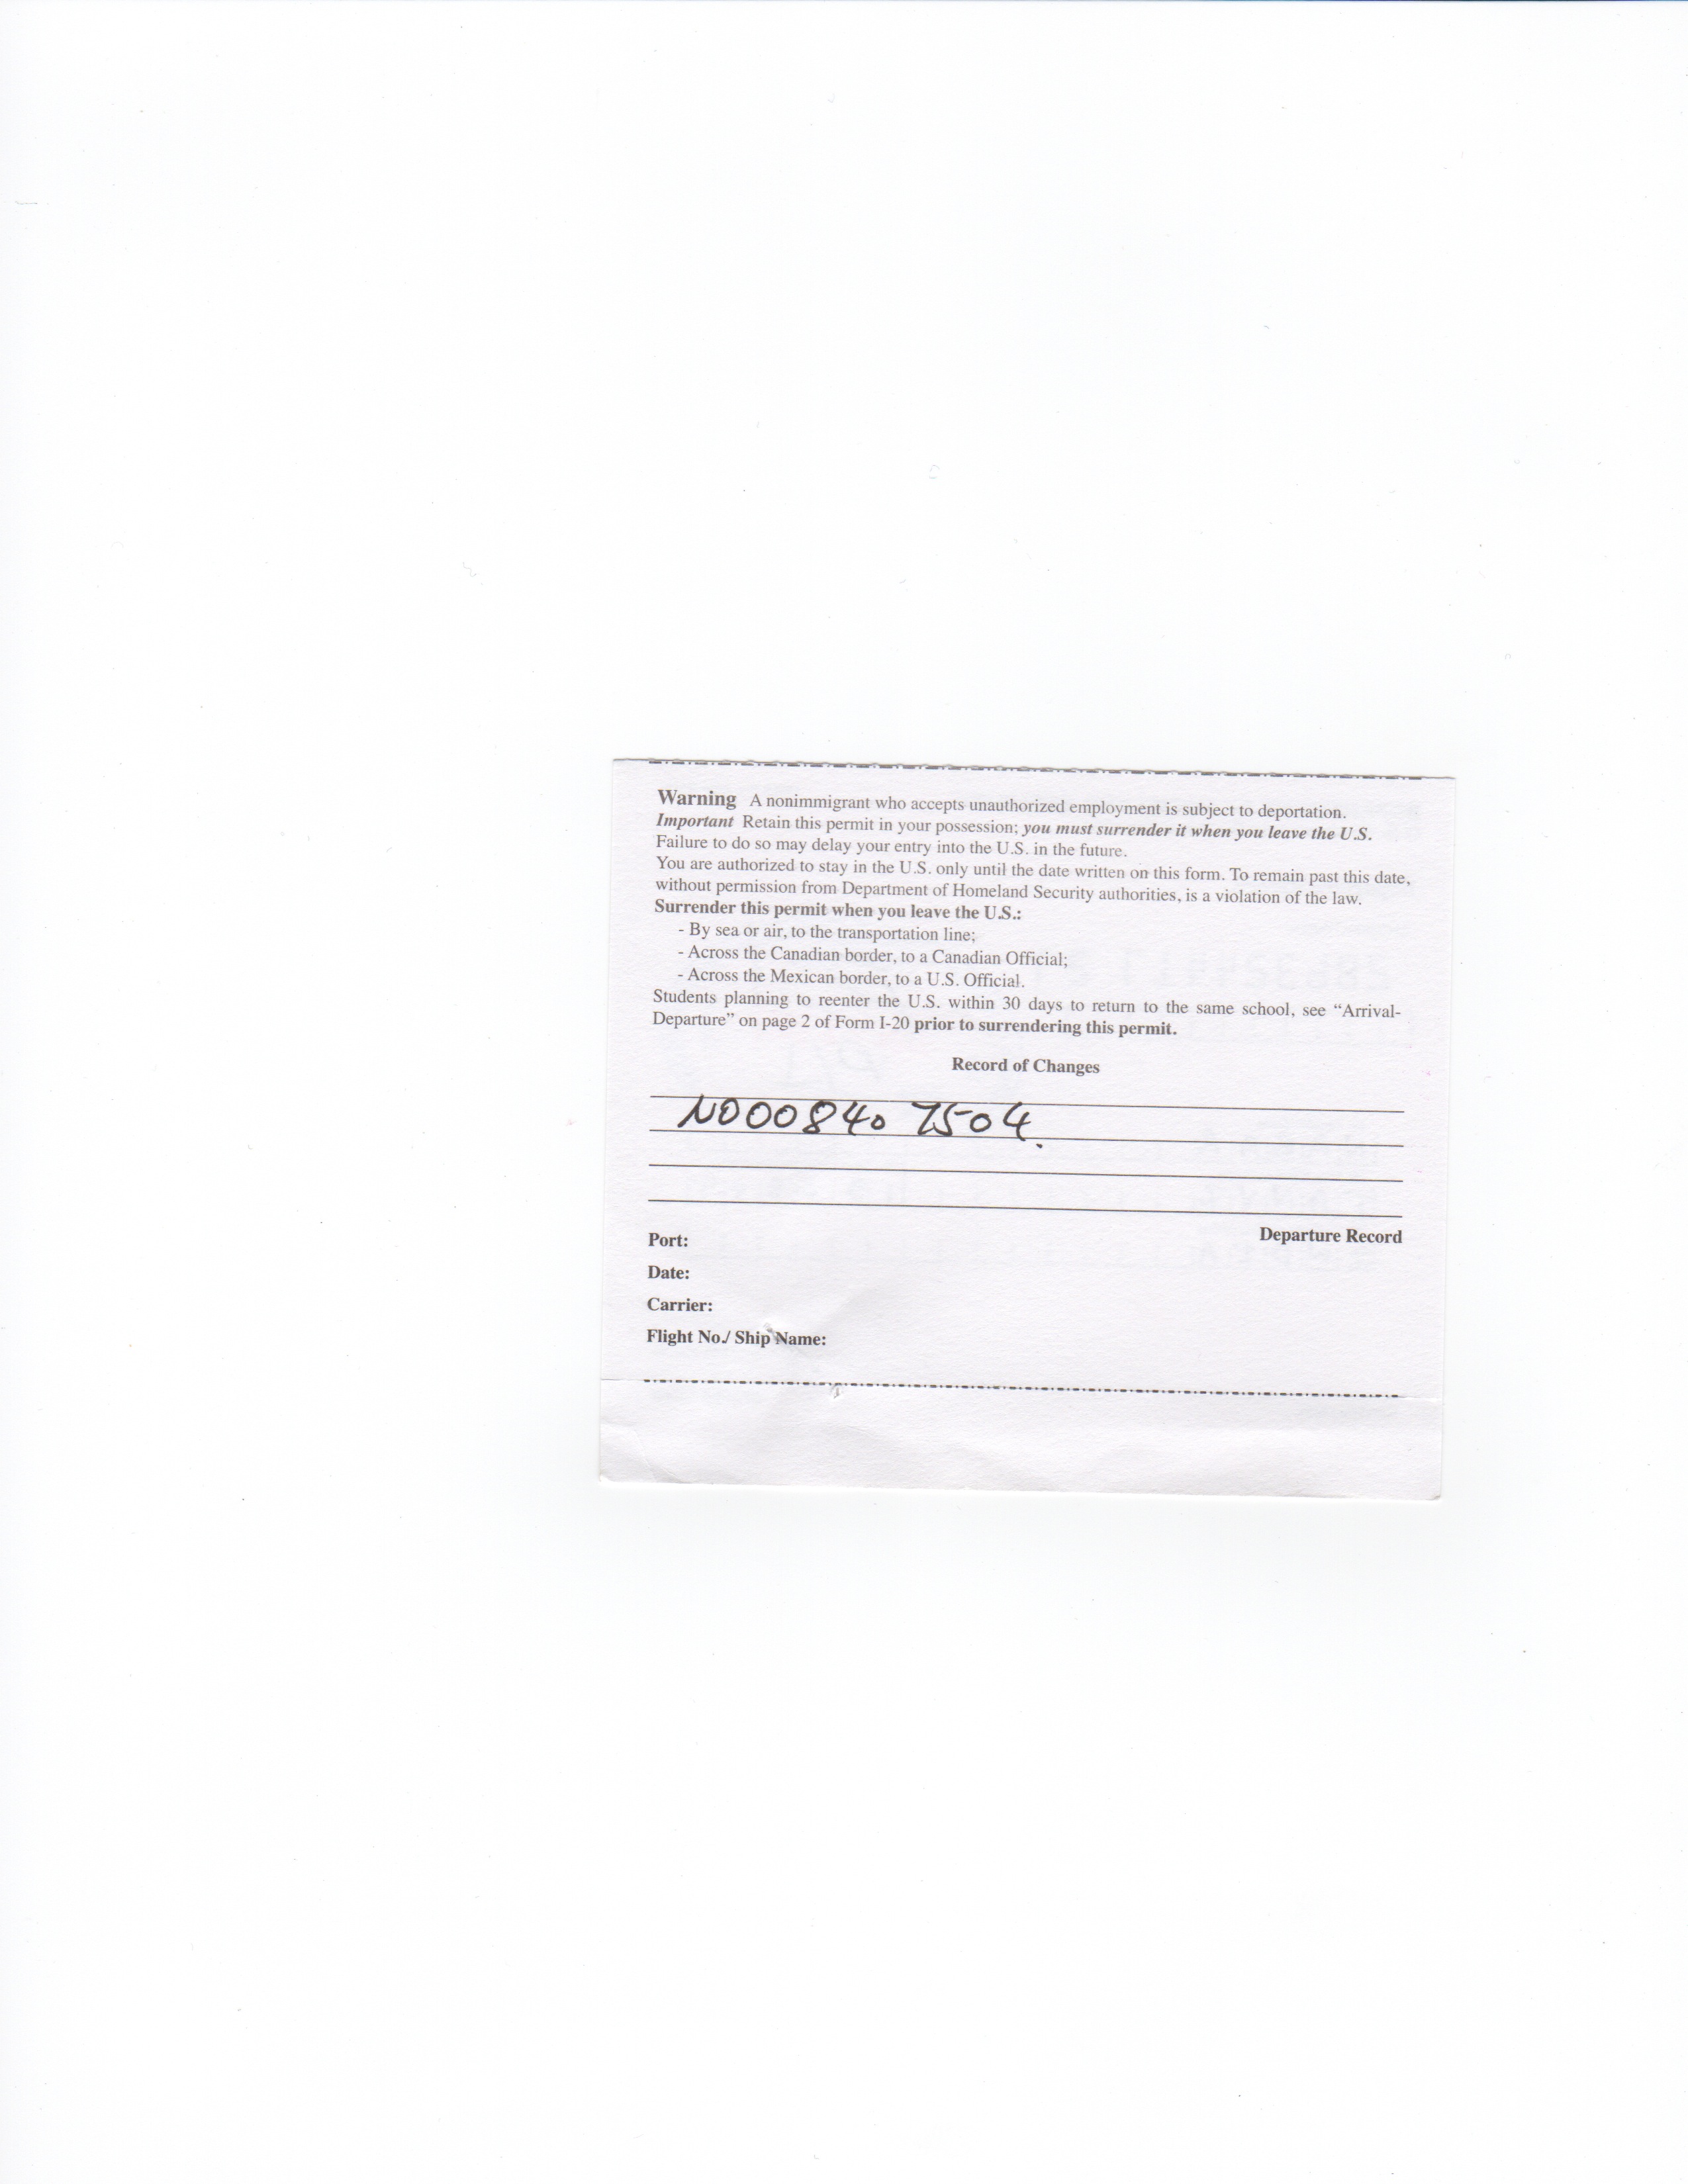 Warning A nonimmigrant who accepts unauthorized employment is subject to deportation.
Important Retain this permit in your possession; you must surrender it when you leave the U.S.
Failure to do so may delay your entry into the U.S. in the future.
You are authorized to stay in the U.S. only until the date written on this form. To remain past this date,
without permission from Department of Homeland Security authorities, is a violation of the law.
Surrender this permit when you leave the U.S.:
- By sea or air, to the transportation line;
- Across the Canadian border, to a Canadian Official;
- Across the Mexican border, to a U.S. Official.
Students planning to reenter the U.S. within 30 days to return to the same school, see “Arrival-
Departure” on page 2 of Form I-20 prior to surrendering this permit.
Record of Changes
N000840 7504.
Departure Record
Port:
Date:
Carrier:
Flight No./ Ship Name: